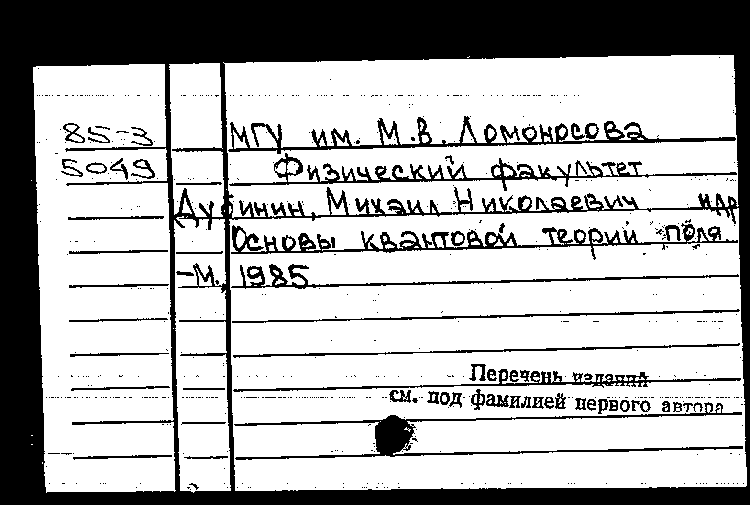 85-3 МГУ им. М.В. Ломоносова
5049 Физический факультет
Дубинин, Михаил Николаевич и др
Основы квантовой теории поля.
-М., 1985.
Перечень изданий
см. под фамилией первого автора